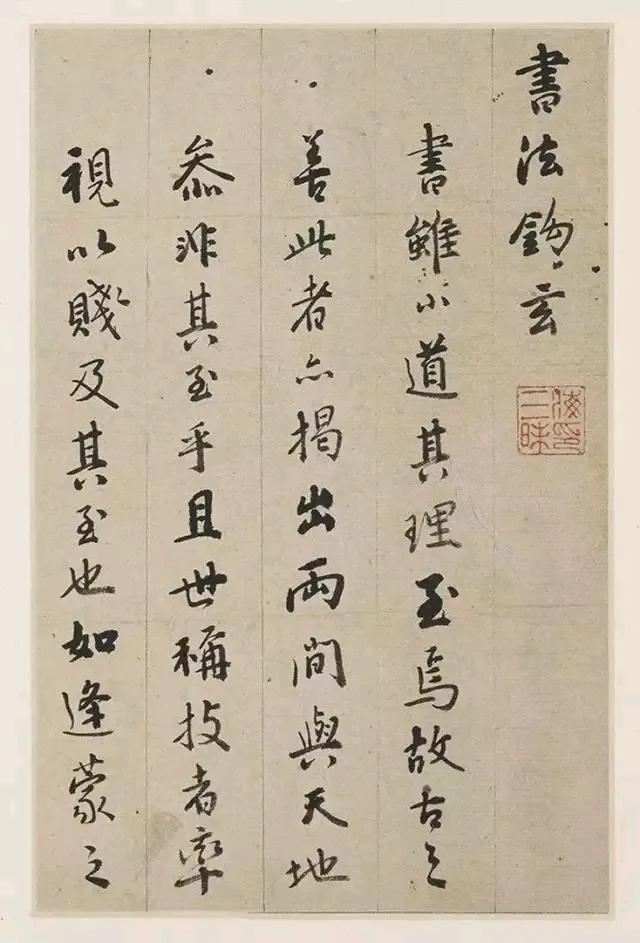 書法鉤玄
書雖小道其理至焉故古之
善此者亦揭出兩間與天地
叅非其至乎且世稱技者率
視以賤及其至也如逢蒙之
三昧